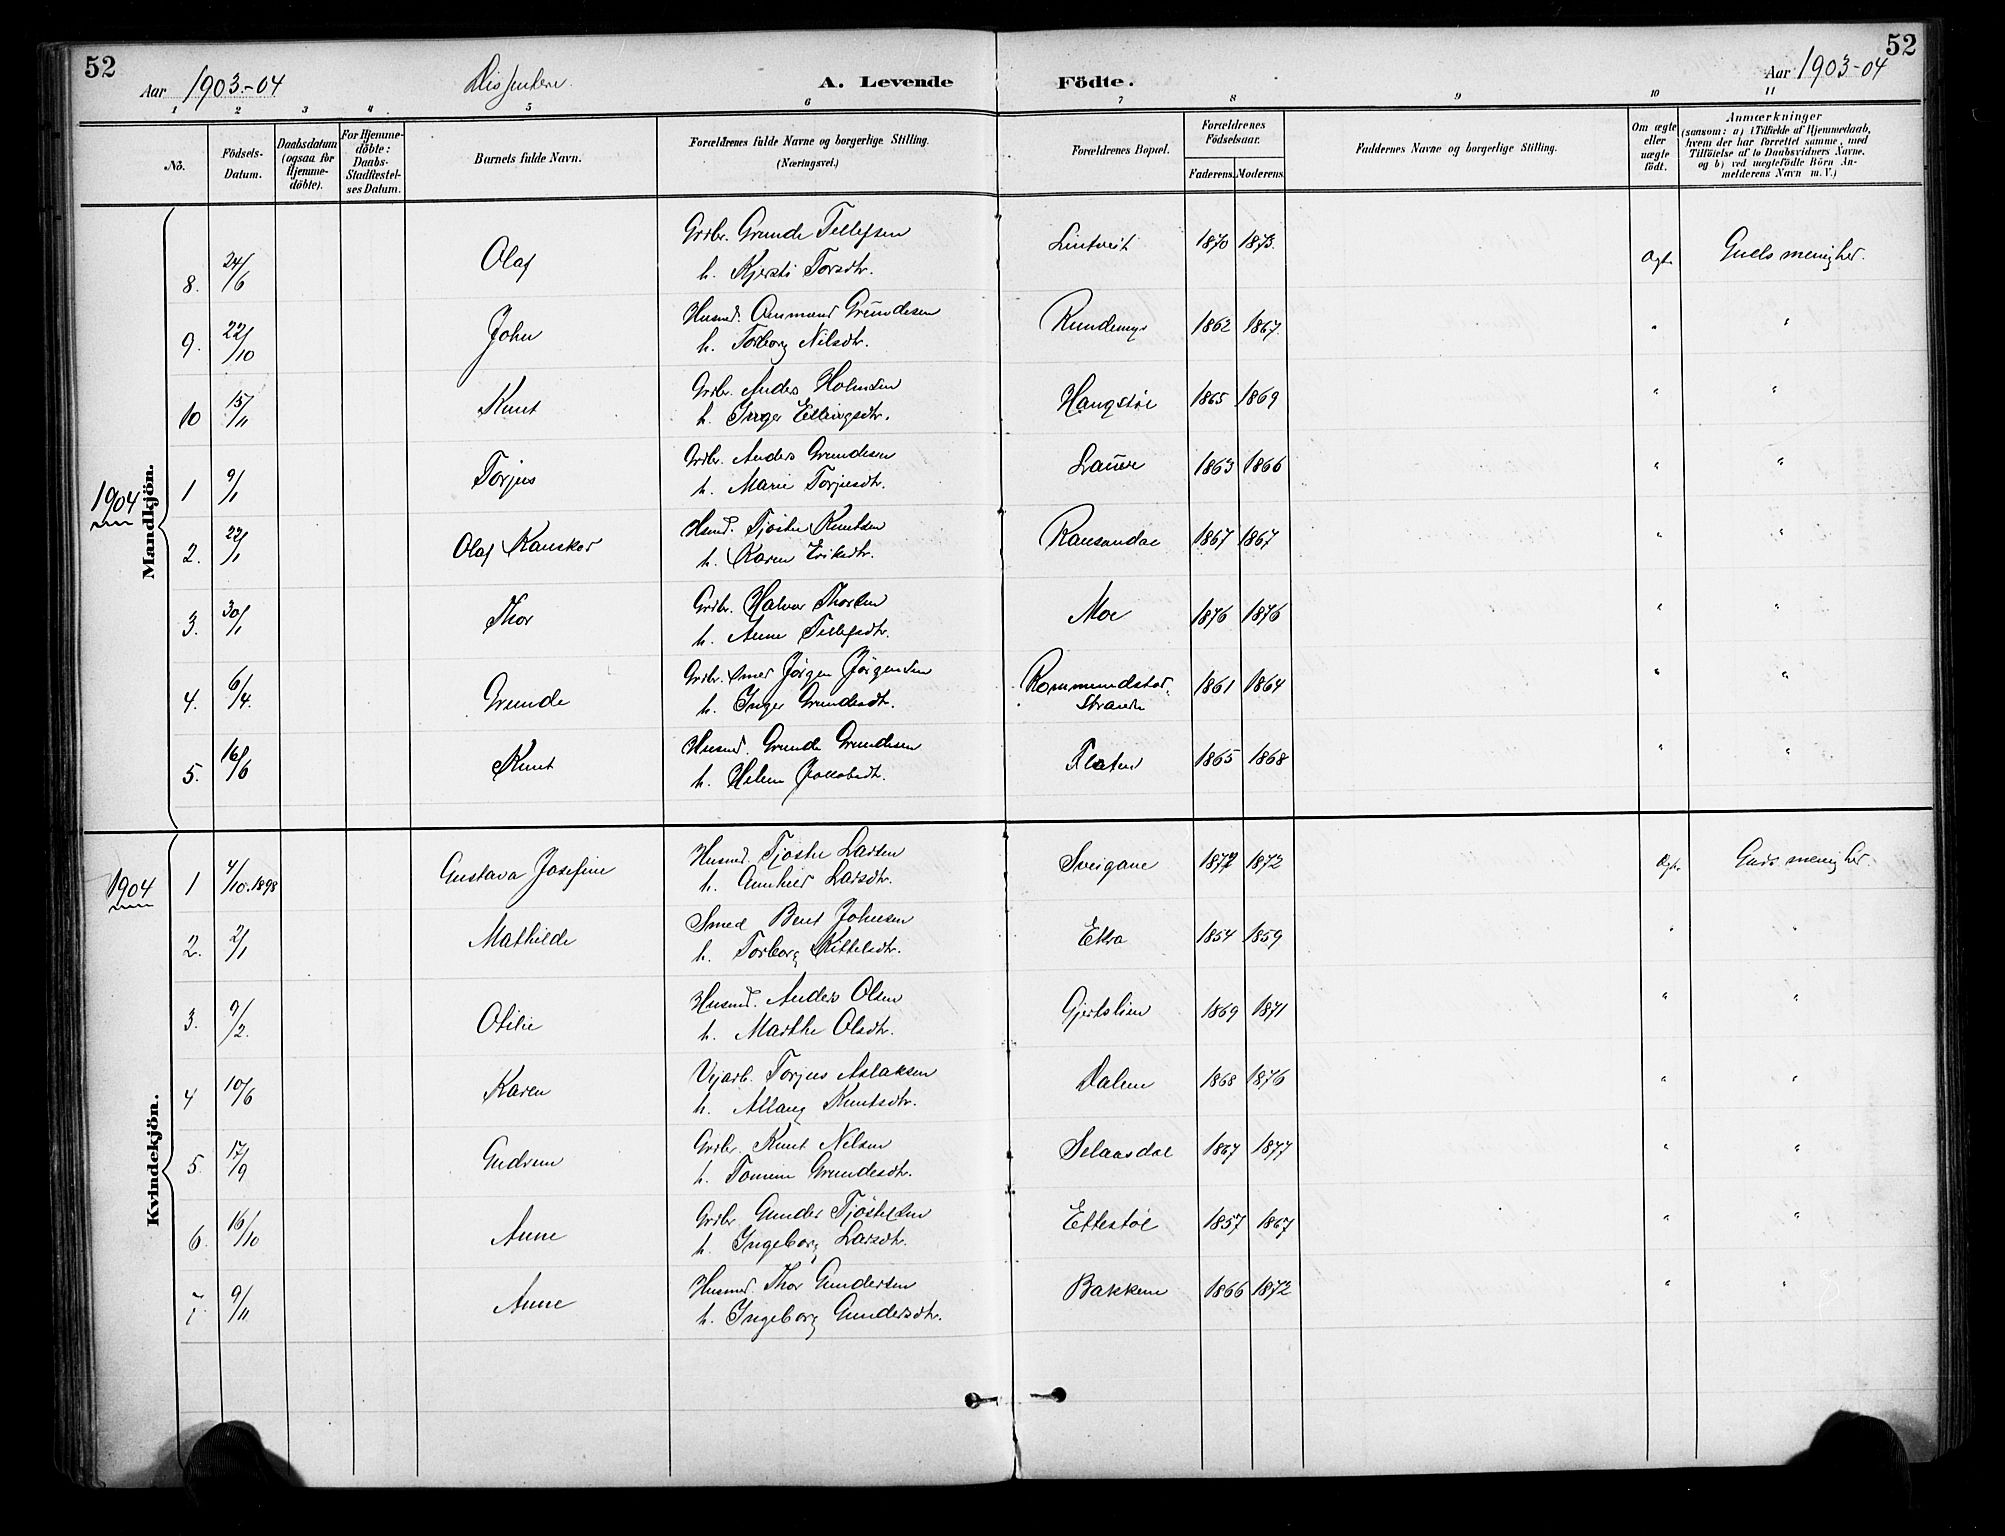 52
Aar 1903.-04
Dissentere
A. Levende
Födte.
Aar 1903-04
52
1 2 3 4 5 6 7 8 9 10 11
Nò.
Födsels-
Datum.
Daabsdatum
(ogsaa for
Hjemme-
döbte).
For Hjemme-
döbte:
Daabs-
Stadfæstel-
ses Datum.
Barnets fulde Navn.
Forældrenes fulde Navne og borgerlige Stilling.
(Næringsvei.)
Forældrenes Bopæl.
Forældrenes
Födselsaar.
Faderens. Moderens.
Faddernes Navne og borgerlige Stilling.
Om ægte
eller
uægte
födt.
Anmærkninger
(saasom: a) i Tilfælde af Hjemmedaab,
hvem der har forrettet samme, med
Tilföielse af to Daabsvidners Navne,
og b) ved uægtefödte Börn An-
melderens Navn m. V.)
Mandkjön.
8. 24/6 Olaf Grbr. Grunde Tellefsen
h. Kjersti Torsdtr. Lintveit 1870 1873. Ægte Guds menighed.
9. 22/10 John Husmd. Ommund Grundesen
h. Torborg Nilsdtr. Rundemyr 1862 1867. " "
10 15/11 Knut Grbr. Anders Holmsen
h. Inger Ellingsdtr. Haugstøl 1865 1869 " "
1904
1 9/1 Torjus Grbr. Anders Grundesen
h. Marie Torjusdtr. Lauve 1863 1866 " "
2. 22/1 Olaf Kanskor Husmd. Tjøstel Knutsen
h. Karen Eriksdtr. Ransundal 1867 1867 " "
3. 30/1 Thor Grbr. Halvor Thorsen
h. Anne Tellefsdtr. Moe 1876 1876 " "
4. 6/4. Grunde Grbr. Smed Jørgen Jørgensen
h. Inger Grundesdtr. Rommundstad
Strande 1861 1864 " "
5. 16/6 Knut Husmd. Grunde Grundesen
h. Helene Jakobsdt. Flaten 1865 1868 " "
Kvindekjön.
1904
1 4/10.1898 Gustava Josefine Husmd. Tjøstel Larsen
h. Gunhild Larsdtr. Sveigane 1872 1872 Ægte Guds menighed.
2. 2/1 Mathilde Smed Bent Johnsen
h. Torborg Kittelsdtr. Ettra 1854 1859 " "
3. 9/2. Otilie Husmd. Anders Olsen
h. Marthe Olsdtr. Gjertslien 1869 1871 " "
4 10/6 Karen Vejarb. Torjus Aslaksen
h. Aslaug Knutsdtr. Dalene 1868 1876 " "
5. 17/9 Gudrun Grbr. Knut Nilsen
h. Tomine Grundesdtr. Selaasdal 1867 1877 " "
6. 16/10 Anne Grbr. Gunder Tjøstelsen
h. Ingeborg Larsdtr. Ettestøl 1857 1867 " "
7. 9/11 Anne Husmd. Thor Gundersen
h. Ingeborg Gundersdtr. Bakkene 1866 1872 " "